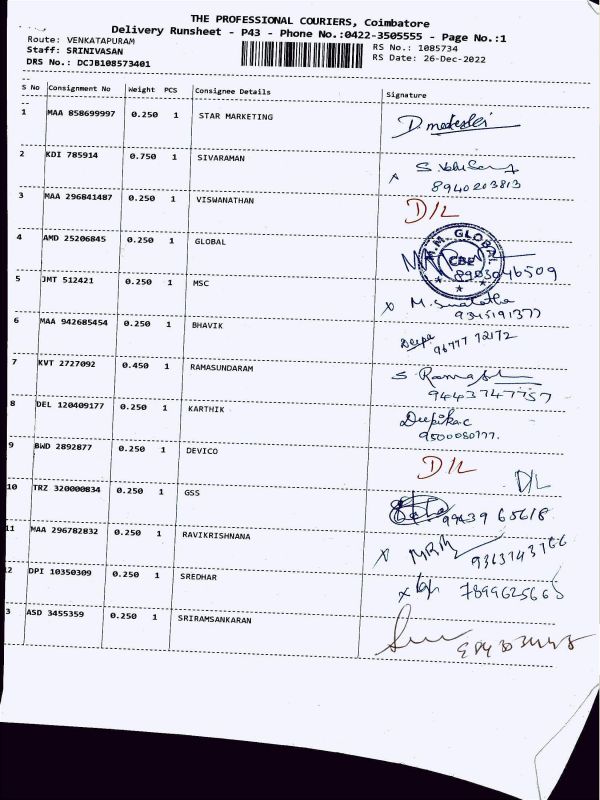 THE PROFESSIONAL COURIERS, Coimbatore
Delivery Runsheet - P43 - Phone No.:0422-3505555 - Page No.:1
Route: VENKATAPURAM
Staff: SRINIVASAN
DRS No.: DCJB108573401
RS No.: 1085734
RS Date: 26-Dec-2022
S No Consignment No Weight PCS Consignee Details Signature
1 MAA 858699997 0.250 1 STAR MARKETING
2 KDI 785914 0.750 1 SIVARAMAN
8940203813
3 MAA 296841487 0.250 1 VISWANATHAN D/L
4 AMD 25206845 0.250 1 GLOBAL
M.M. GLOBAL CBE
8903046509
5 JMT 512421 0.250 1 MSC
9345191377
6 MAA 942685454 0.250 1 BHAVIK Deepa
96777 72172
7 KVT 2727092 0.450 1 RAMASUNDARAM
9443747757
8 DEL 120409177 0.250 1 KARTHIK Deepika.c
9500080777.
9 BWD 2892877 0.250 1 DEVICO D/L
D/L
10 TRZ 320000834 0.250 1 GSS 99439 65618
11 MAA 296782832 0.250 1 RAVIKRISHNANA
9363143766
2 DPI 10350309 0.250 1 SREDHAR 7899625665
3 ASD 3455359 0.250 1 SRIRAMSANKARAN